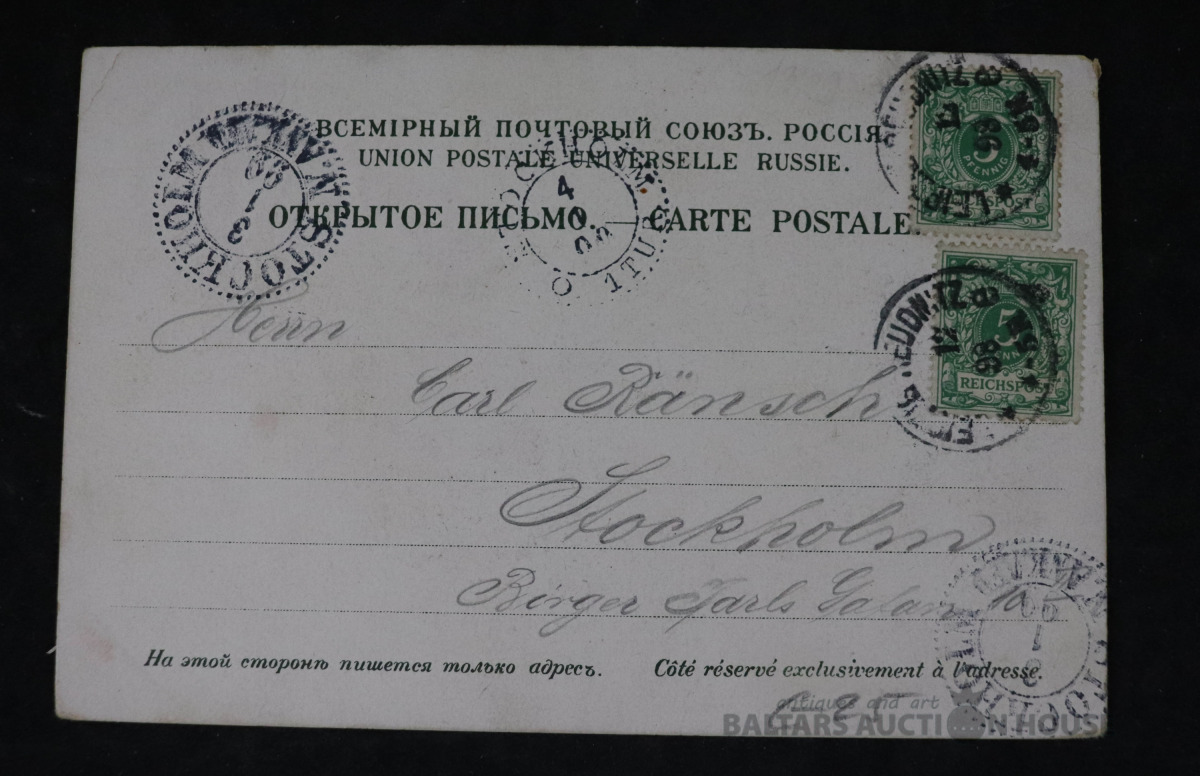 ВСЕМІРНЫЙ ПОЧТОВЫЙ СОЮЗЪ. РОССІЯ
UNION POSTALE UNIVERSELLE RUSSIE.
ОТКРЫТОЕ ПИСЬМО. — CARTE POSTALE.
STOCKHOLM
3 1 00
STOCKHOLM
4 1 00
1 TUR
5
PFENNIG
REICHSPOST
LEIPZIG REUDNITZ
5
PFENNIG
REICHSPOST
LEIPZIG REUDNITZ
Herrn
Carl Ränsch
Stockholm
Birger Jarls Gatan
STOCKHOLM
3 1 00
На этой сторонѣ пишется только адресъ.
Côté réservé exclusivement à l'adresse.
antiques and art
BALTARS AUCTION HOUSE